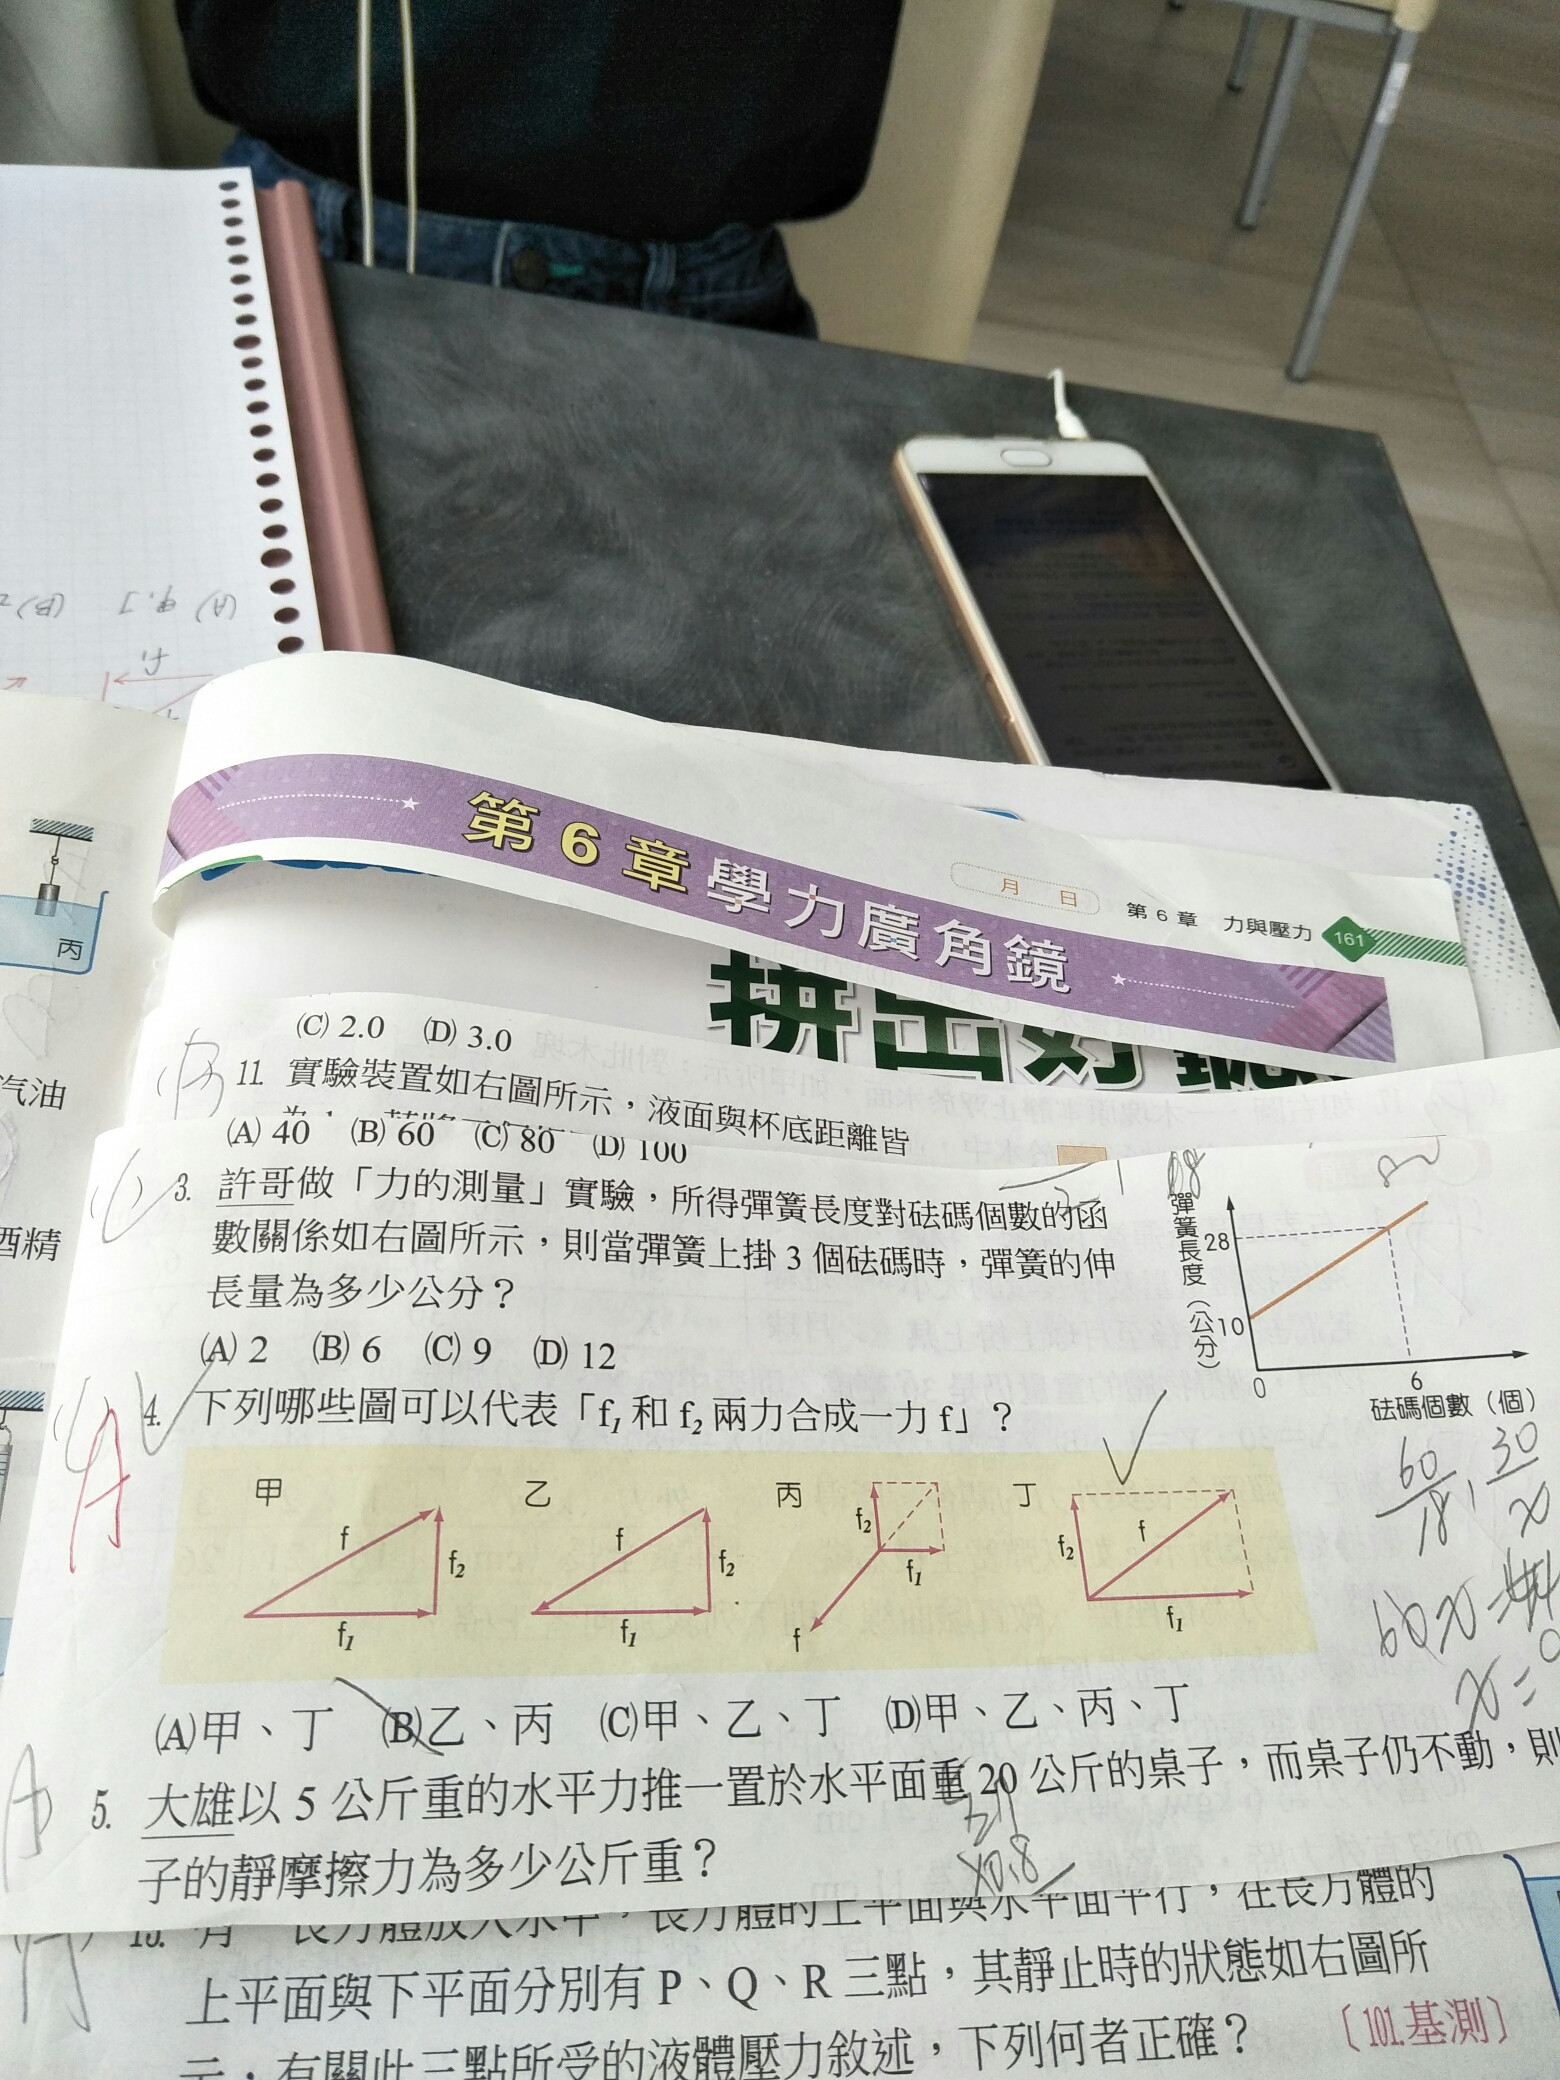 第6章學力廣角鏡
月 日
第6章 力與壓力 161
拼出好
丙
汽油
酒精
(C) 2.0 (D) 3.0
11. 實驗裝置如右圖所示，液面與杯底距離皆
(A) 40 (B) 60 (C) 80 (D) 100
3. 許哥做「力的測量」實驗，所得彈簧長度對砝碼個數的函
數關係如右圖所示，則當彈簧上掛 3 個砝碼時，彈簧的伸
長量為多少公分？
(A) 2 (B) 6 (C) 9 (D) 12
彈簧長度（公分）
28
10
0
6
砝碼個數（個）
4. 下列哪些圖可以代表「f1 和 f2 兩力合成一力 f」？
甲 乙 丙 丁
f f2 f1
f f2 f1
f2 f1 f
f2 f f1
(A)甲、丁 (B)乙、丙 (C)甲、乙、丁 (D)甲、乙、丙、丁
5. 大雄以 5 公斤重的水平力推一置於水平面重 20 公斤的桌子，而桌子仍不動，則
子的靜摩擦力為多少公斤重？
長方體放入水中，長方體的上平面與水平面平行，在長方體的
上平面與下平面分別有 P、Q、R 三點，其靜止時的狀態如右圖所
示，有關此三點所受的液體壓力敘述，下列何者正確？ 〔101.基測〕
60 30
18 x
x=
x0.8
A